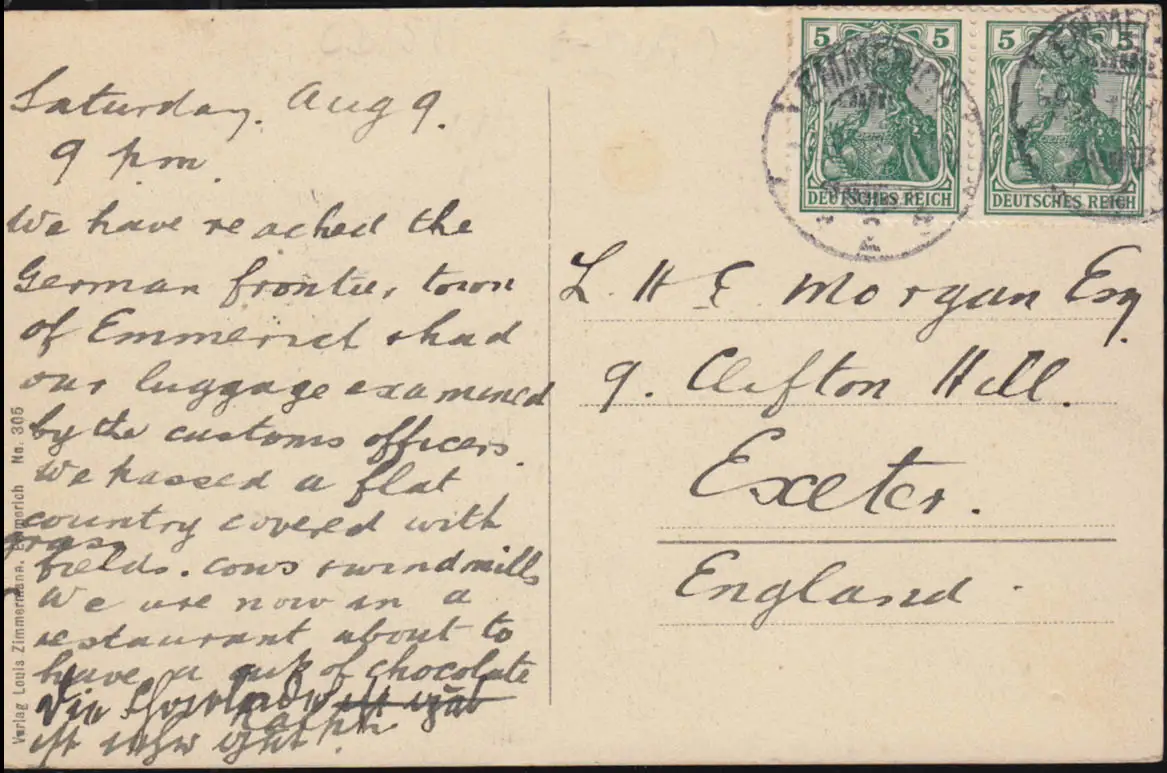 Saturday. Aug 9.
9 pm.
We have reached the
German frontier town
of Emmerich & had
our luggage examined
by the customs officers.
We passed a flat
country covered with
grass
fields. cows & windmills
We are now in a
restaurant about to
have a cup of chocolate
Ralph
ist sehr gut.
Verlag Louis Zimmermann, Emmerich No. 306
5 5
EMMERICH
DEUTSCHES REICH
5 5
EMMERICH
DEUTSCHES REICH
L. H E. Morgan Esq.
9. Clifton Hill.
Exeter.
England.